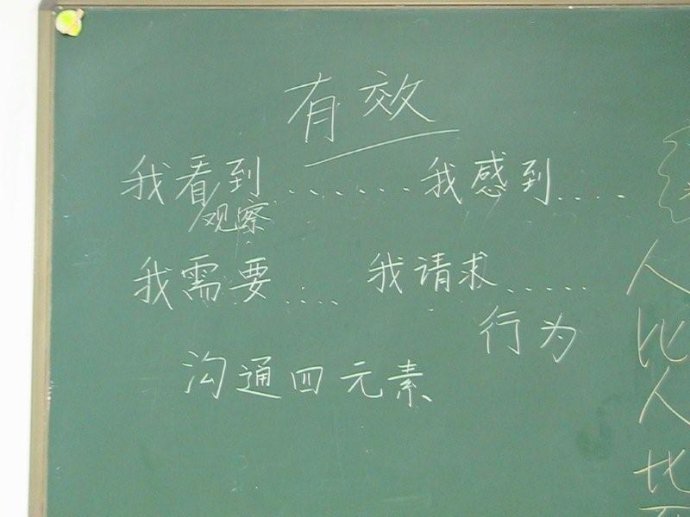 有效
我看到.......我感到.....
观察
我需要.... 我请求......
行为
沟通四元素
人
比
人
比